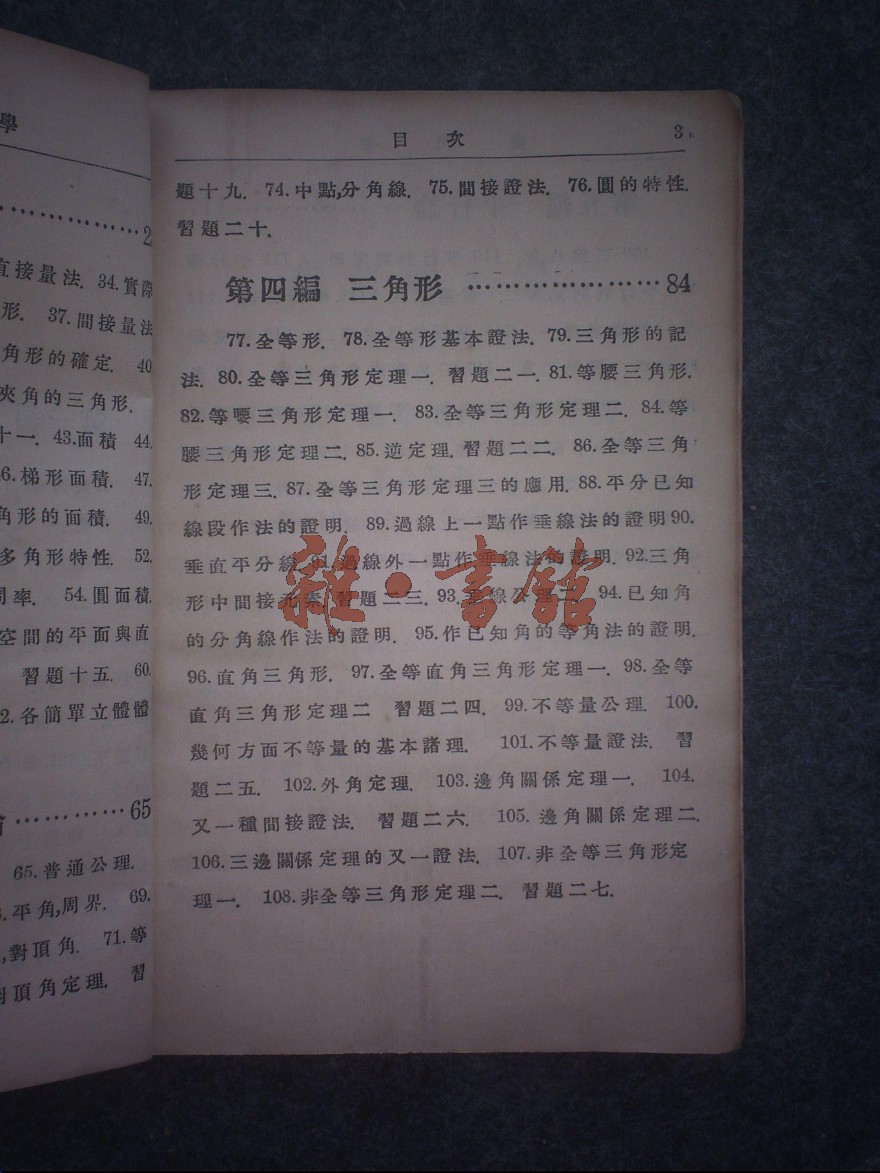 學
2
直接量法. 34.實際
形. 37.間接量法
角形的確定. 40
夾角的三角形.
十一. 43.面積 44.
46.梯形面積. 47.
角形的面積. 49.
多角形特性. 52.
周率. 54.圓面積
空間的平面與直
習題十五. 60.
2.各簡單立體體
…………65
65.普通公理.
.平角,周界. 69.
,對頂角. 71.等
對頂角定理. 習
目 次 3
題十九. 74.中點,分角線. 75.間接證法. 76.圓的特性.
習題二十.
第四編 三角形 …………………84
77.全等形. 78.全等形基本證法. 79.三角形的記
法. 80.全等三角形定理一. 習題二一. 81.等腰三角形.
82.等腰三角形定理一. 83.全等三角形定理二. 84.等
腰三角形定理二. 85.逆定理. 習題二二. 86.全等三角
形定理三. 87.全等三角形定理三的應用. 88.平分已知
線段作法的證明. 89.過線上一點作垂線法的證明 90.
垂直平分線. 91.過線外一點作垂線法的證明. 92.三角
形中間接元素. 習題二三. 93.垂線公理二. 94.已知角
的分角線作法的證明. 95.作已知角的等角法的證明.
96.直角三角形. 97.全等直角三角形定理一. 98.全等
直角三角形定理二 習題二四. 99.不等量公理. 100.
幾何方面不等量的基本諸理. 101.不等量證法. 習
題二五. 102.外角定理. 103.邊角關係定理一. 104.
又一種間接證法. 習題二六. 105.邊角關係定理二.
106.三邊關係定理的又一證法. 107.非全等三角形定
理一. 108.非全等三角形定理二. 習題二七.
雜·書館